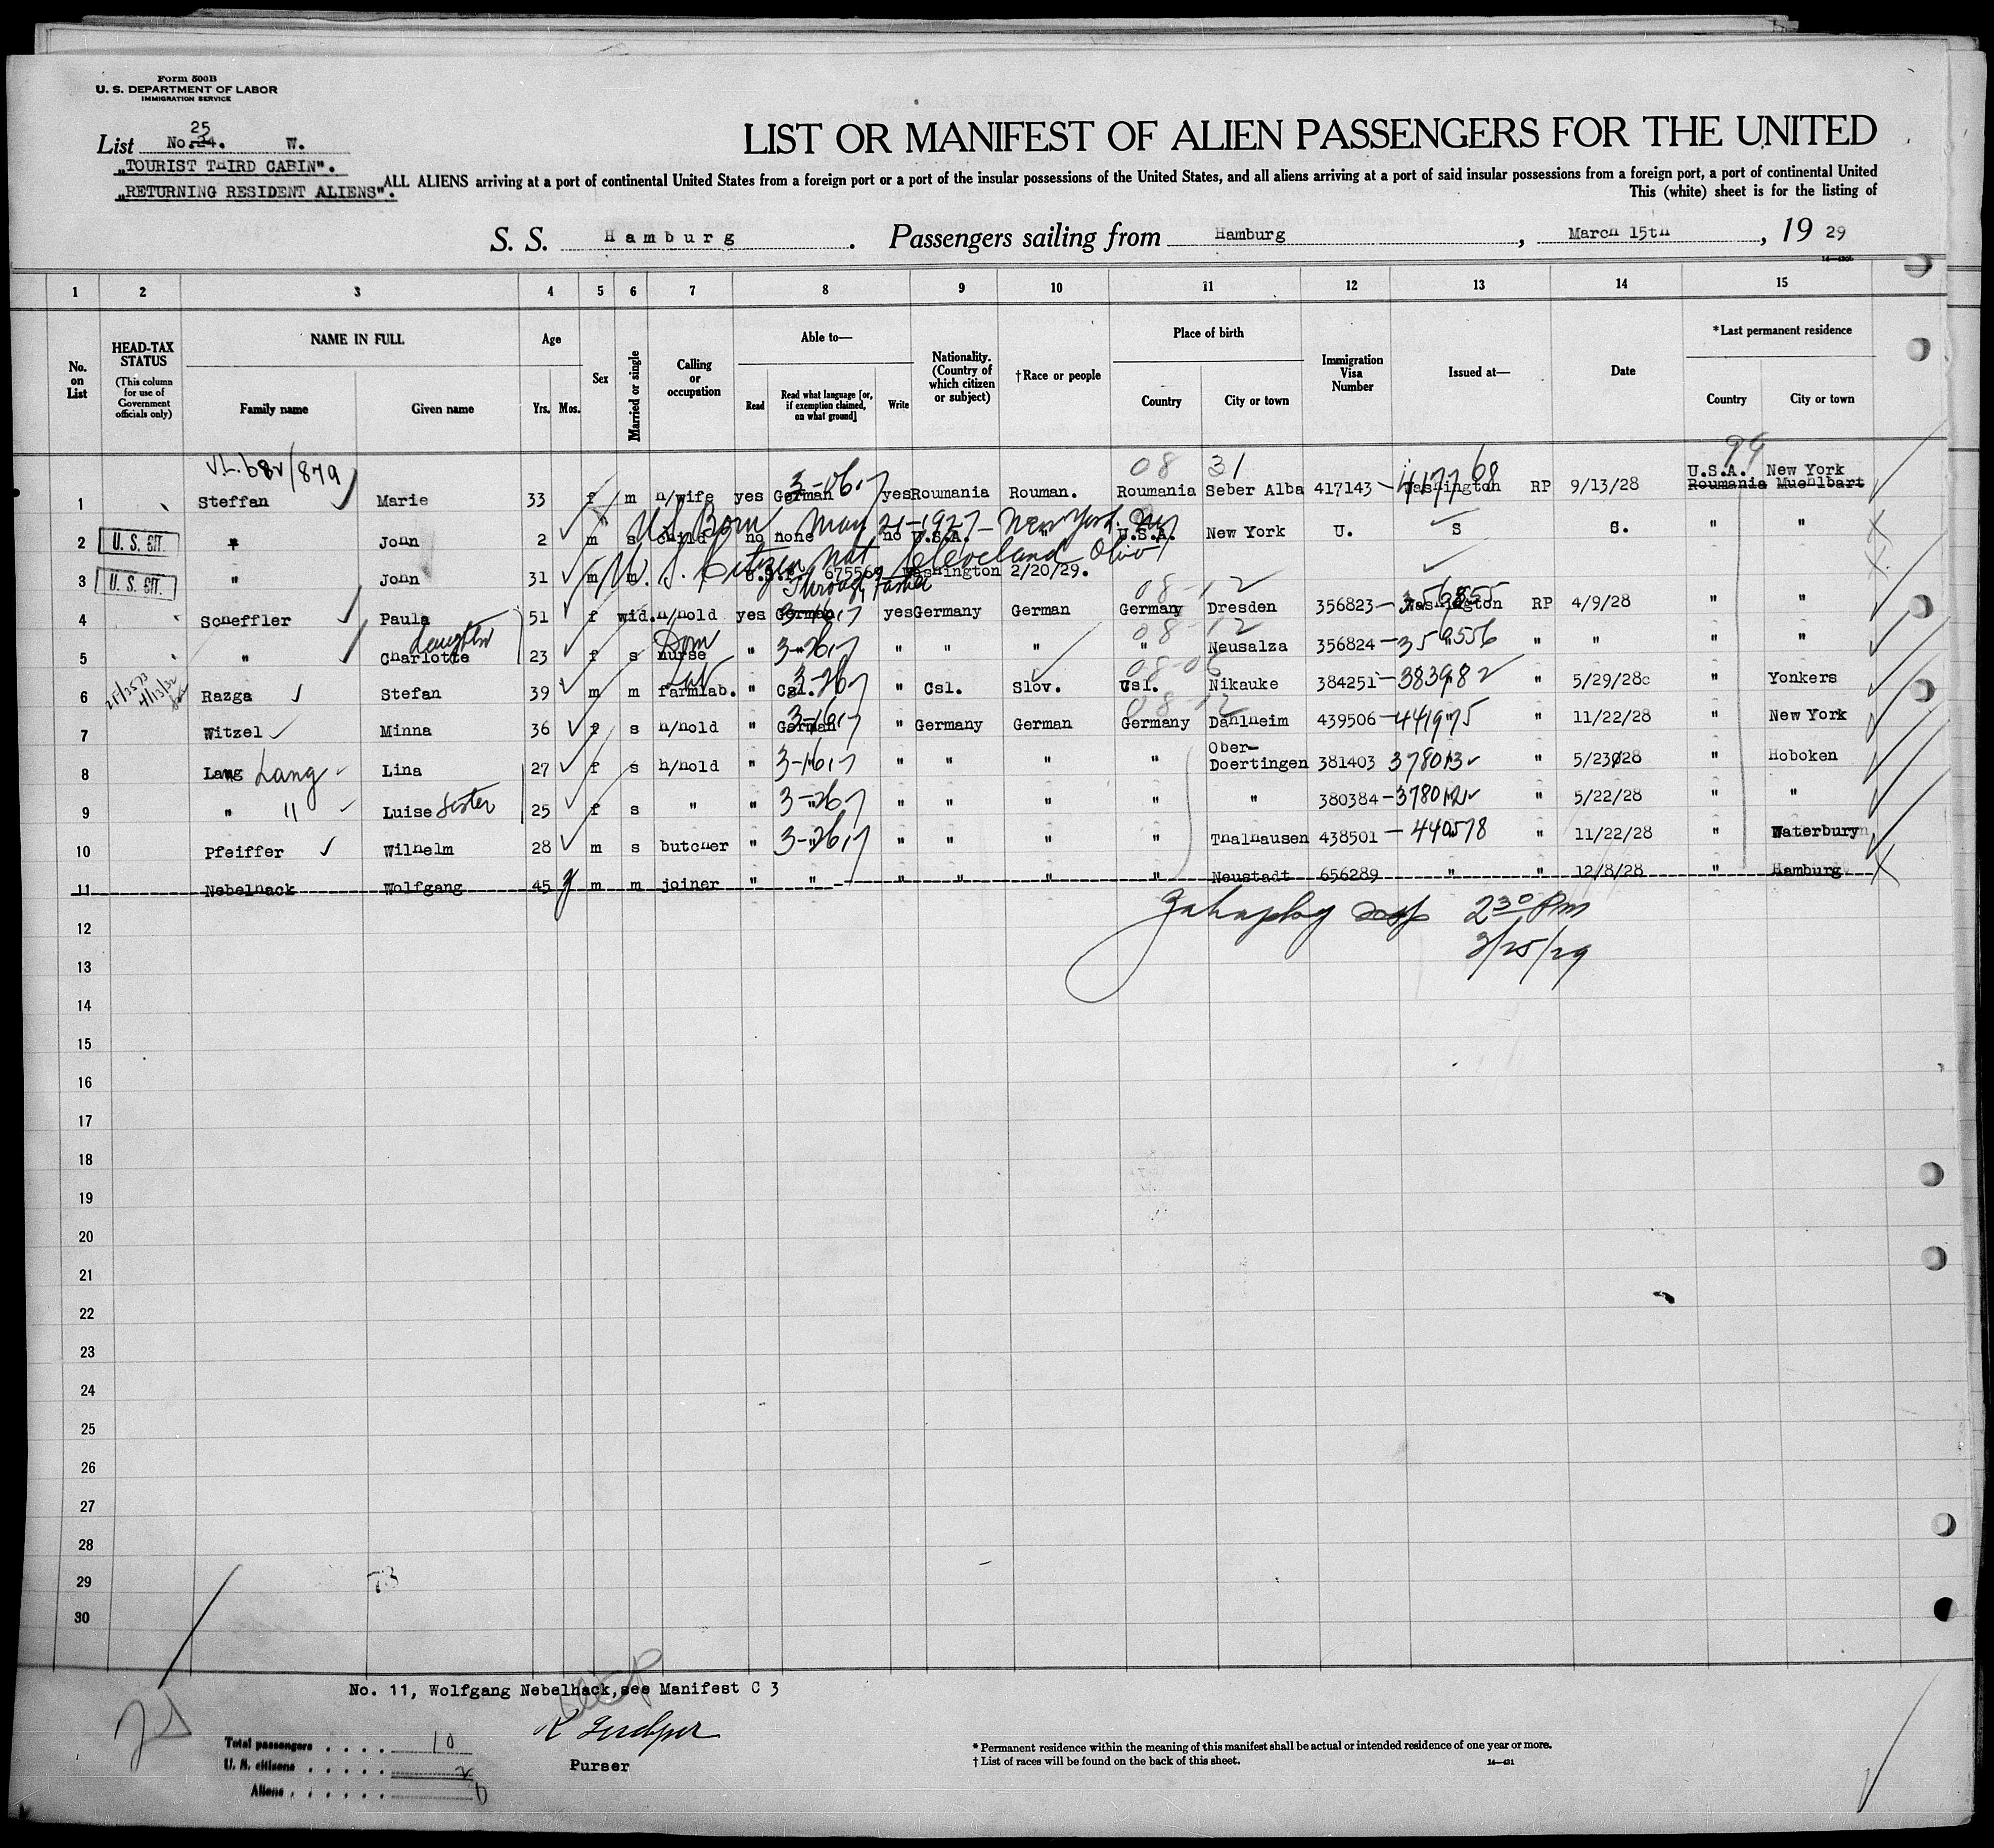 Form 500B
U. S. DEPARTMENT OF LABOR
IMMIGRATION SERVICE
25
List No. 24. W.
"TOURIST THIRD CABIN".
"RETURNING RESIDENT ALIENS".
LIST OR MANIFEST OF ALIEN PASSENGERS FOR THE UNITED
ALL ALIENS arriving at a port of continental United States from a foreign port or a port of the insular possessions of the United States, and all aliens arriving at a port of said insular possessions from a foreign port, a port of continental United
This (white) sheet is for the listing of
S. S. Hamburg . Passengers sailing from Hamburg , March 15th , 19 29
1 2 3 4 5 6 7 8 9 10 11 12 13 14 15
No. on List
HEAD-TAX STATUS (This column for use of Government officials only)
NAME IN FULL Family name Given name
Age Yrs. Mos.
Sex
Married or single
Calling or occupation
Able to— Read Read what language [or, if exemption claimed, on what ground] Write
Nationality. (Country of which citizen or subject)
†Race or people
Place of birth Country City or town
Immigration Visa Number
Issued at—
Date
*Last permanent residence Country City or town
08 31 99
U.S.A. New York
1 Steffan Marie 33 f m h/wife yes German yes Roumania Rouman. Roumania Seber Alba 417143 Washington RP 9/13/28 Roumania Muehlbart
U.S. Born May 21-1927 - New York. Ny
2 U. S. CIT. " John 2 m s child no none no U.S.A. " U.S.A. New York U. S S. " "
U. S. Citizen Nat Cleveland Ohio
3 U. S. CIT. " John 31 m m U.S.P. 675569 Washington 2/20/29.
Through Father
08-12
4 Scheffler Paula 51 f wid. h/hold yes German yes Germany German Germany Dresden 356823 Washington RP 4/9/28 " "
daughter Dom 08-12
5 " Charlotte 23 f s nurse " " " " " " Neusalza 356824 - 359556 " " " "
Lab 08-06
6 Razga Stefan 39 m m farmlab. " Csl. " Csl. Slov. Csl. Nikauke 384251 - 383982 " 5/29/28 " Yonkers
08-12
7 Witzel Minna 36 f s h/hold " German " Germany German Germany Dahlheim 439506 - 441975 " 11/22/28 " New York
8 Lang Lang Lina 27 f s h/hold " " " " " " Ober-Doertingen 381403 378013 " 5/23/28 " Hoboken
9 " " Luise Sister 25 f s " " " " " " " " 380384 - 378012 " 5/22/28 " "
10 Pfeiffer Wilhelm 28 m s butcher " " " " " " Thalhausen 438501 - 440578 " 11/22/28 " Waterbury
11 Nebelhack Wolfgang 45 m m joiner " " " " " " Neustadt 656289 " " 12/8/28 " Hamburg
12 2 30 Pm
3/25/29
13
14
15
16
17
18
19
20
21
22
23
24
25
26
27
28
29
30
No. 11, Wolfgang Nebelhack, see Manifest C 3
Total passengers . . . . 10
U. S. citizens . . . . . 2
Aliens . . . . . .
Purser
*Permanent residence within the meaning of this manifest shall be actual or intended residence of one year or more.
† List of races will be found on the back of this sheet.
14—431